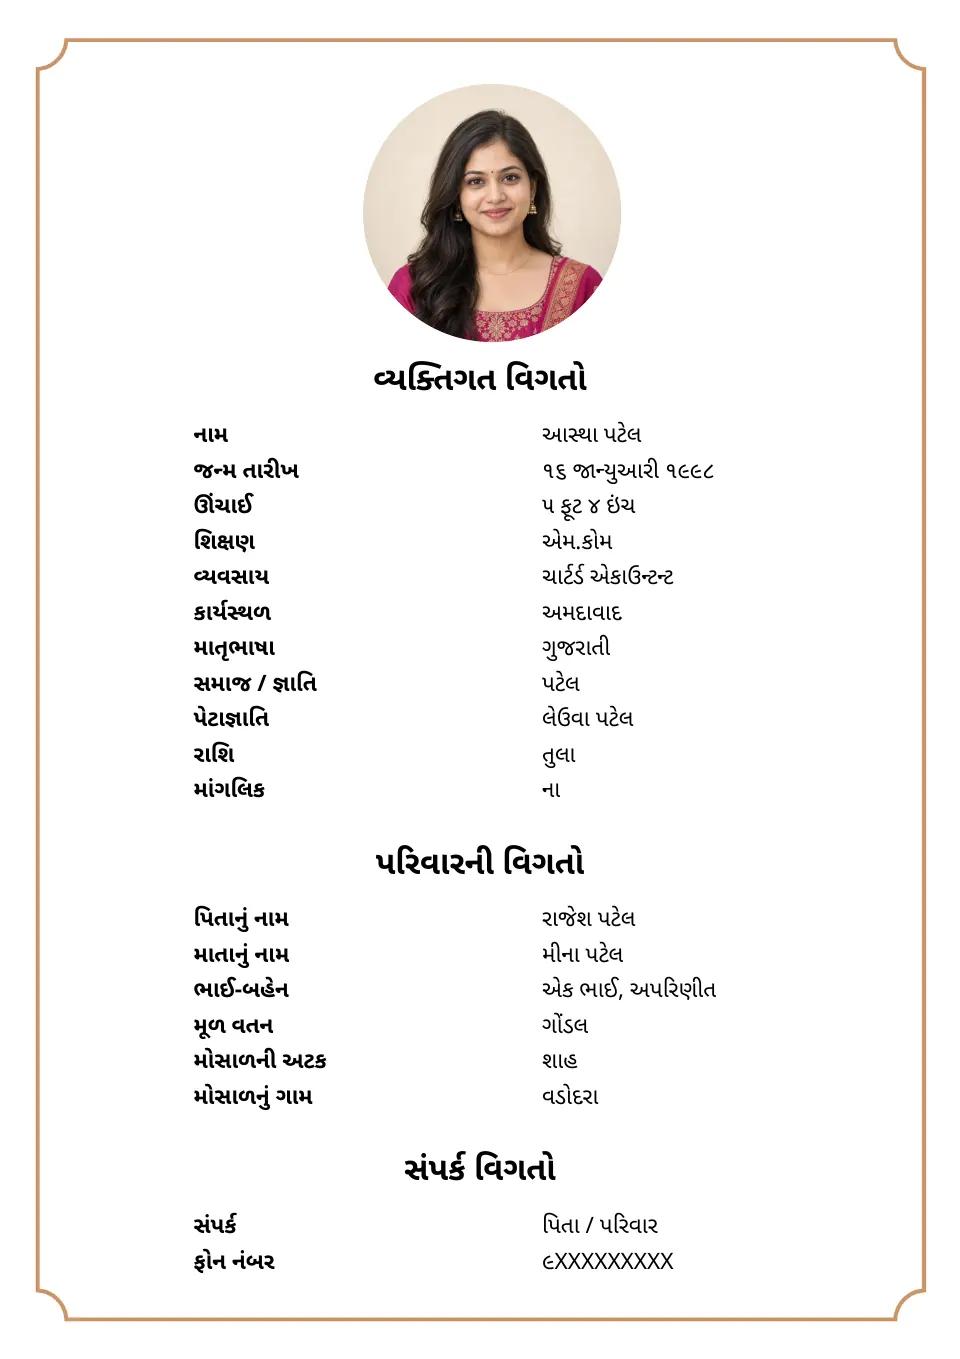 વ્યક્તિગત વિગતો
નામ આસ્થા પટેલ
જન્મ તારીખ ૧૬ જાન્યુઆરી ૧૯૯૮
ઊંચાઈ ૫ ફૂટ ૪ ઇંચ
શિક્ષણ એમ.કોમ
વ્યવસાય ચાર્ટર્ડ એકાઉન્ટન્ટ
કાર્યસ્થળ અમદાવાદ
માતૃભાષા ગુજરાતી
સમાજ / જ્ઞાતિ પટેલ
પેટાજ્ઞાતિ લેઉવા પટેલ
રાશિ તુલા
માંગલિક ના
પરિવારની વિગતો
પિતાનું નામ રાજેશ પટેલ
માતાનું નામ મીના પટેલ
ભાઈ-બહેન એક ભાઈ, અપરિણીત
મૂળ વતન ગોંડલ
મોસાળની અટક શાહ
મોસાળનું ગામ વડોદરા
સંપર્ક વિગતો
સંપર્ક પિતા / પરિવાર
ફોન નંબર ૯XXXXXXXXX